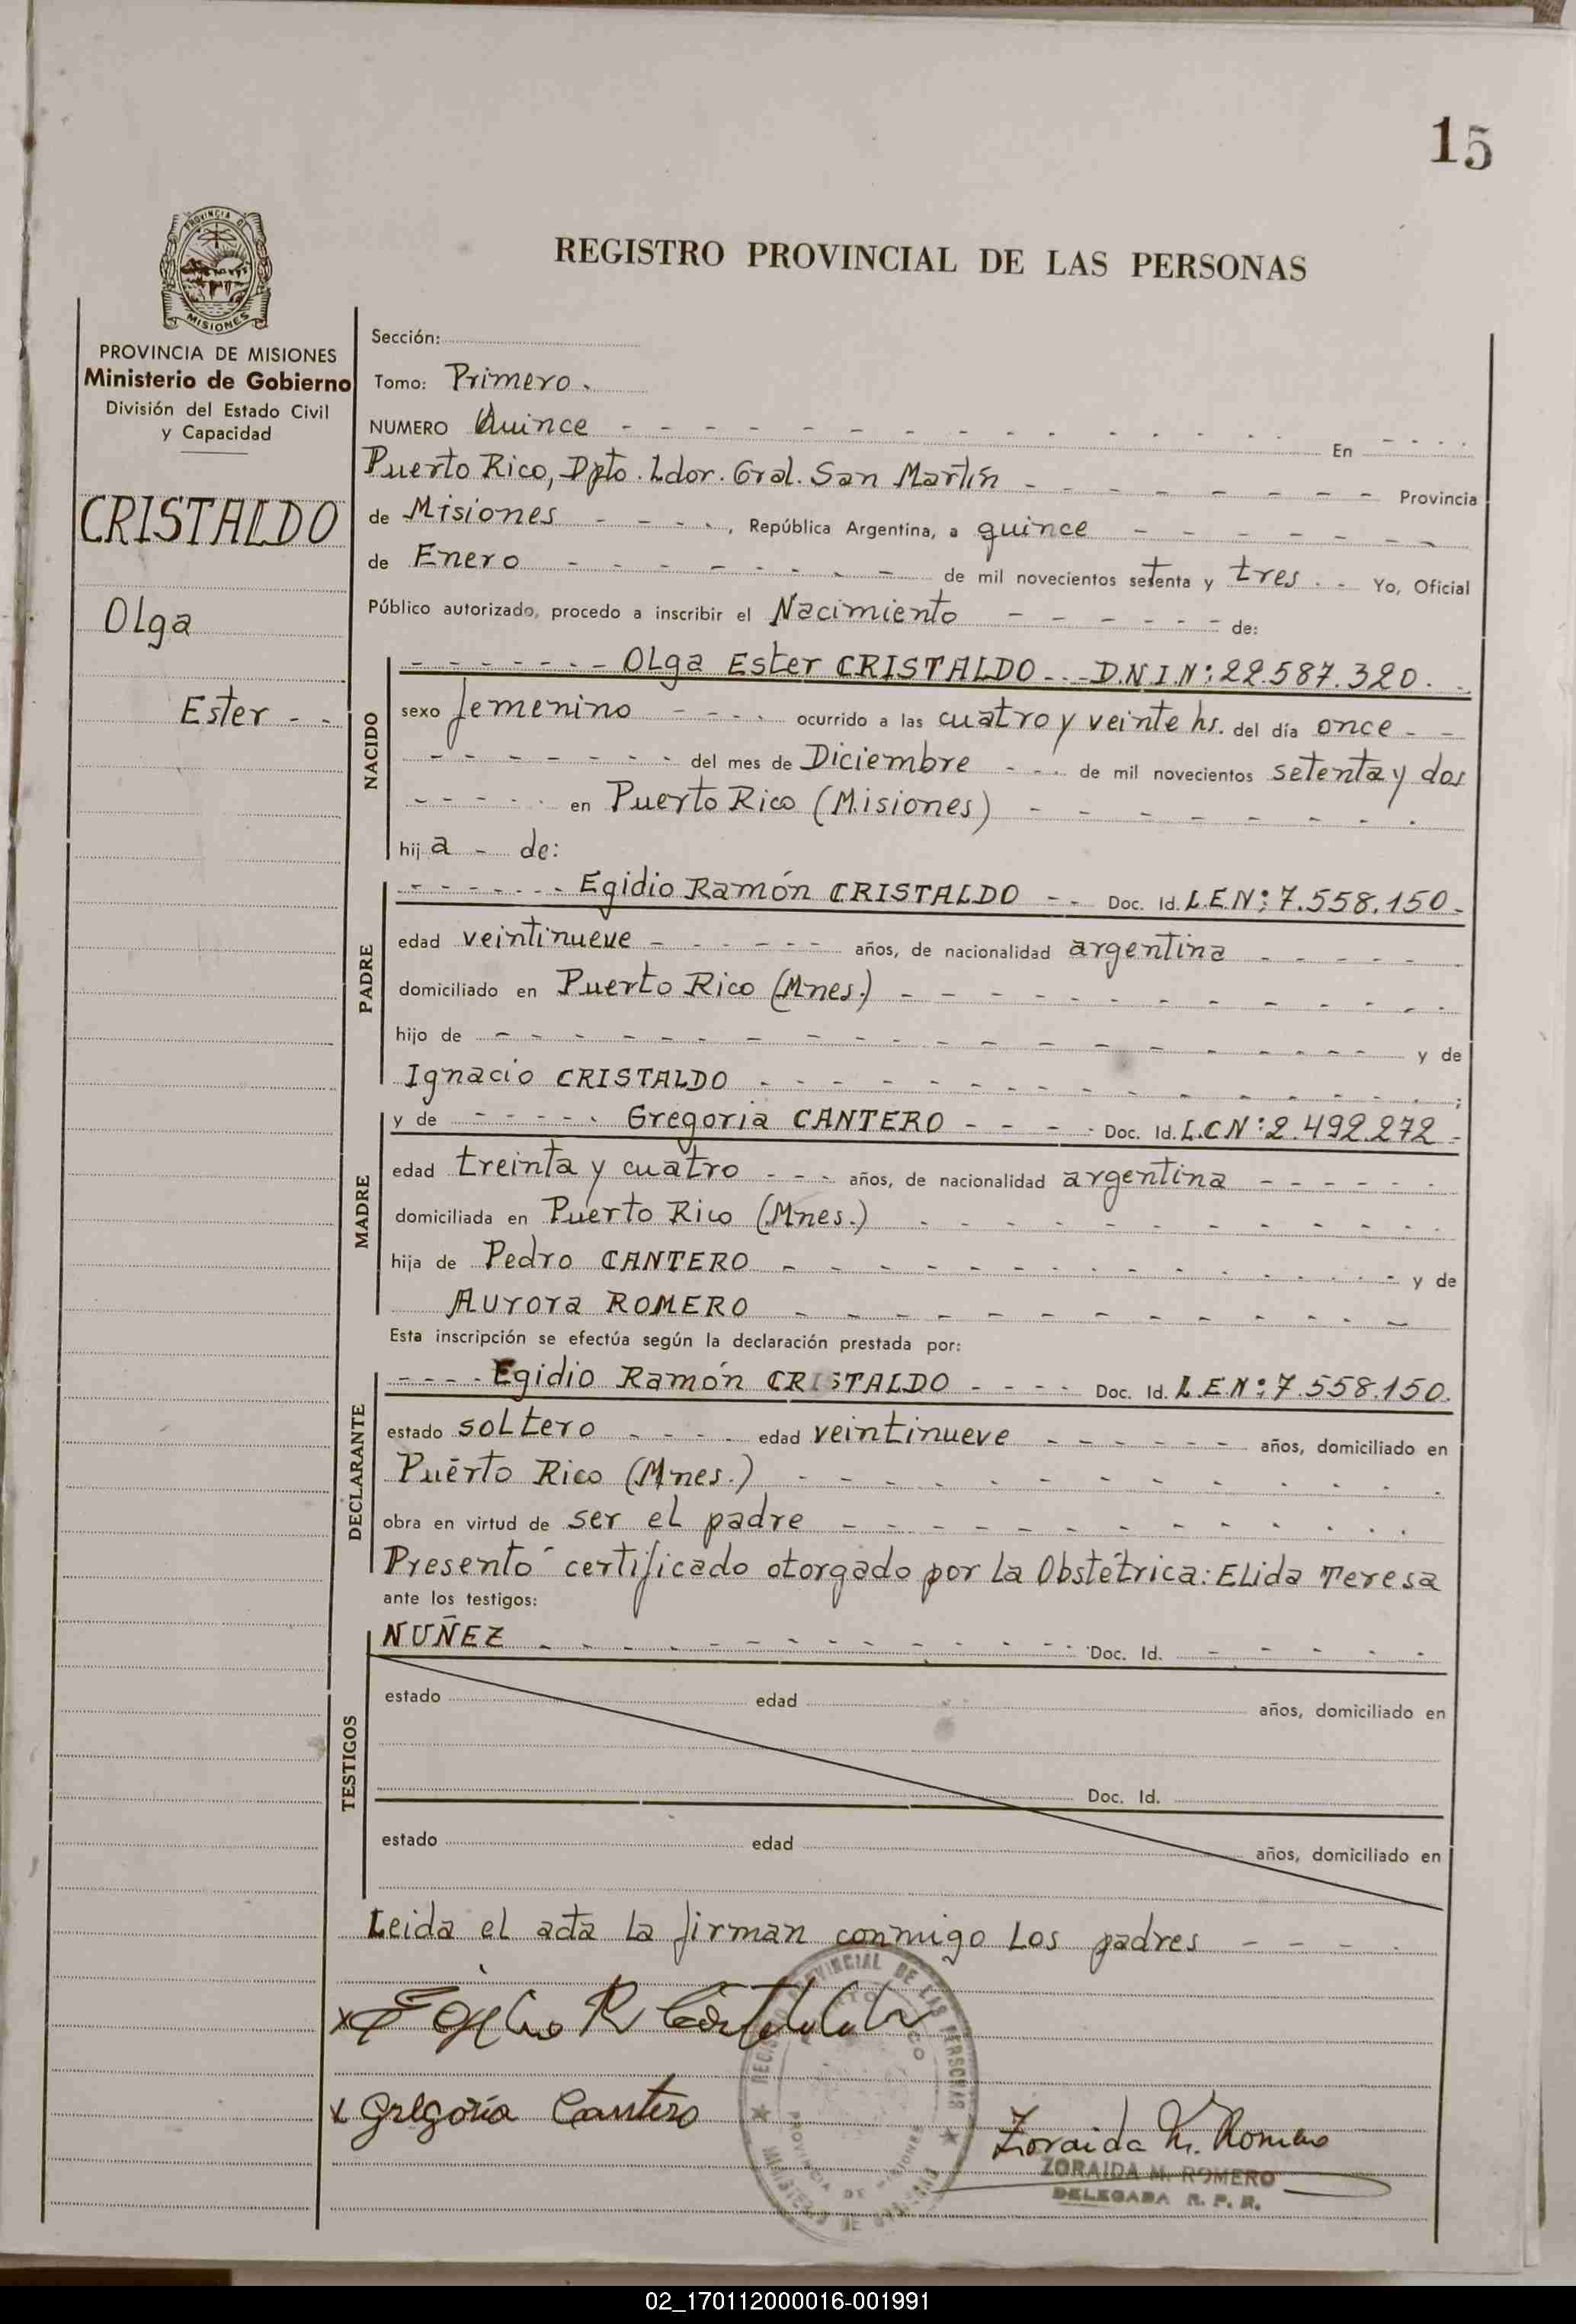 15
PROVINCIA DE
MISIONES
REGISTRO PROVINCIAL DE LAS PERSONAS
PROVINCIA DE MISIONES
Ministerio de Gobierno
División del Estado Civil
y Capacidad
CRISTALDO
Olga
Ester - -
Sección:
Tomo: Primero.
NUMERO Quince - - - - En - - - -
Puerto Rico, Dpto. Ldor. Gral. San Martín - - - - Provincia
de Misiones - - - -, República Argentina, a quince - - - -
de Enero - - - - de mil novecientos setenta y tres. - Yo, Oficial
Público autorizado, procedo a inscribir el Nacimiento - - - - de:
NACIDO
- - - - Olga Ester CRISTALDO - - - D.N.I.N: 22.587.320. -
sexo femenino - - - - ocurrido a las cuatro y veinte hs. del día once - -
- - - - del mes de Diciembre - - - de mil novecientos setenta y dos
- - - - en Puerto Rico (Misiones) - - - -
hij a - de:
PADRE
- - - - Egidio Ramón CRISTALDO - - Doc. Id. L.E.N: 7.558.150.-
edad veintinueve - - - - años, de nacionalidad argentina - - - -
domiciliado en Puerto Rico (Mnes.) - - - -
hijo de - - - - y de
Ignacio CRISTALDO - - - - ;
MADRE
y de - - - - Gregoria CANTERO - - - - Doc. Id. L.C.N: 2.492.272 -
edad treinta y cuatro - - - años, de nacionalidad argentina - - - -
domiciliada en Puerto Rico (Mnes.) - - - -
hija de Pedro CANTERO - - - - y de
Aurora ROMERO - - - -
Esta inscripción se efectúa según la declaración prestada por:
DECLARANTE
- - - - Egidio Ramón CRISTALDO - - - - Doc. Id. L.E.N: 7.558.150.
estado soltero - - - - edad veintinueve - - - - años, domiciliado en
Puerto Rico (Mnes.) - - - -
obra en virtud de ser el padre - - - -
Presentó certificado otorgado por la Obstétrica: Elida Teresa
ante los testigos:
TESTIGOS
NUÑEZ - - - - Doc. Id. - - - -
estado edad años, domiciliado en
Doc. Id.
estado edad años, domiciliado en
Leida el acta la firman conmigo los padres - - - -
x Egidio R Cristaldo
x Gregoria Cantero
REGISTRO PROVINCIAL DE LAS PERSONAS
PUERTO RICO
PROVINCIA DE MISIONES
MINISTERIO DE GOBIERNO
Zoraida M. Romero
ZORAIDA M. ROMERO
DELEGADA R. P. P.
02_170112000016-001991